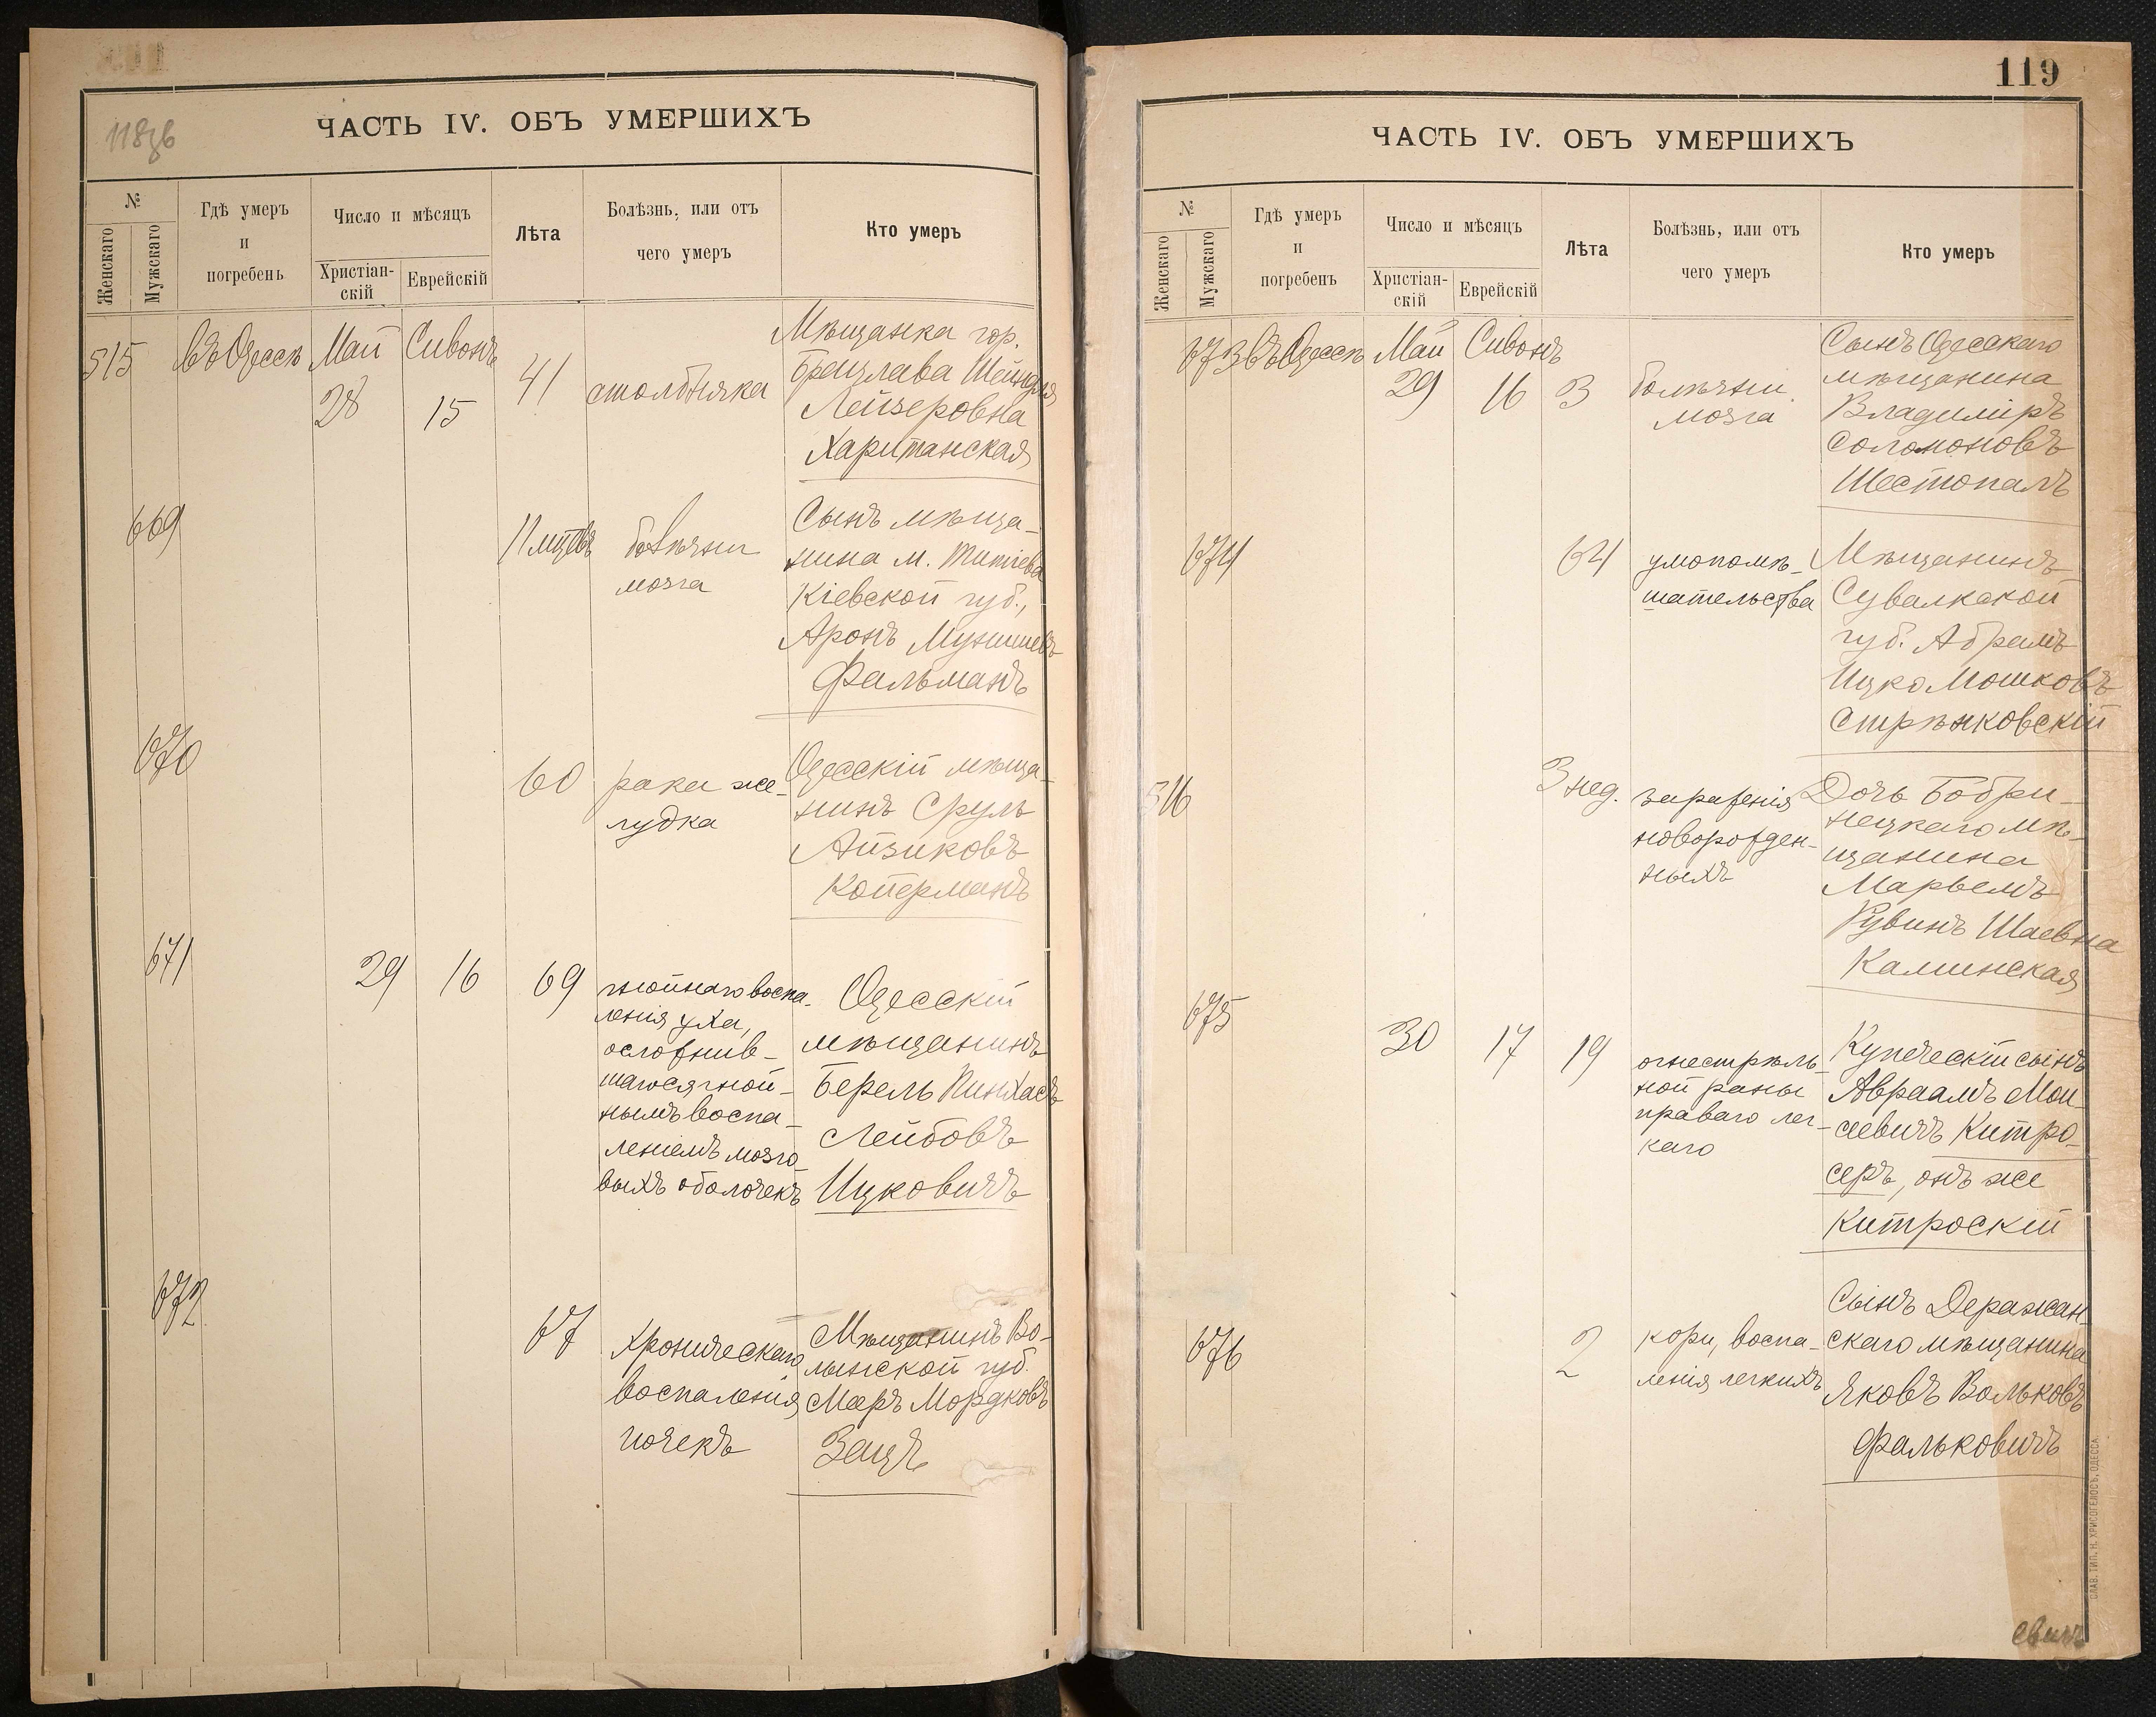 118 зв
ЧАСТЬ IV. ОБЪ УМЕРШИХЪ
№
Женскаго
Мужскаго
Гдѣ умеръ
и
погребенъ
Число и мѣсяцъ
Христіан-
скій
Еврейскій
Лѣта
Болѣзнь, или отъ
чего умеръ
Кто умеръ
515
въ Одессѣ
Май
28
Сивонъ
15
41
столбняка
Мѣщанка гор.
Брацлава Шейндля
Лейзеровна
Хаританская
669
11 мцевъ
болѣзни
мозга
Сынъ мѣща-
нина м. Титіева
Кіевской губ.,
Аронъ Мунишевъ
Фальманъ
670
60
рака же-
лудка
Одесскій мѣща-
нинъ Сруль
Айзиковъ
Койерманъ
671
29
16
69
гнойнаго воспа-
ленія уха,
осложнив-
шагося гной-
нымъ воспа-
леніемъ мозго
выхъ оболочекъ
Одесскій
мѣщанинъ
Берель Пинхасъ
Лейбовъ
Ицковичъ
672
67
хроническаго
воспаленія
почекъ
Мѣщанинъ Во-
лынской губ.
Меръ Мордковъ
Зацъ
119
ЧАСТЬ IV. ОБЪ УМЕРШИХЪ
№
Женскаго
Мужскаго
Гдѣ умеръ
и
погребенъ
Число и мѣсяцъ
Христіан-
скій
Еврейскій
Лѣта
Болѣзнь, или отъ
чего умеръ
Кто умеръ
673
въ Одессѣ
Май
29
Сивонъ
16
3
болѣзни
мозга
Сынъ Одесскаго
мѣщанина
Владиміръ
Соломоновъ
Шестопалъ
674
64
умопомѣ-
шательства
Мѣщанинъ
Сувалкской
губ. Абрамъ
Ицко Мошковъ
Стрѣнковскій
516
3 нед.
зараженія
новорожден-
ныхъ
Дочь Бобри-
нецкаго мѣ-
щанина
Марьемъ
Рувинъ Шаевна
Каминская
675
30
17
19
огнестрѣль-
ной раны
праваго лег-
каго
Купеческій сынъ
Авраамъ Мои-
сеевичъ Китро-
серъ, онъ же
Китроскій
676
2
кори, воспа-
ленія легкихъ
Сынъ Деражан-
скаго мѣщанина
Яковъ Вольковъ
Фальковичъ
СЛАВ. ТИП. Н. ХРИСОГЕЛОСЪ, ОДЕССА.